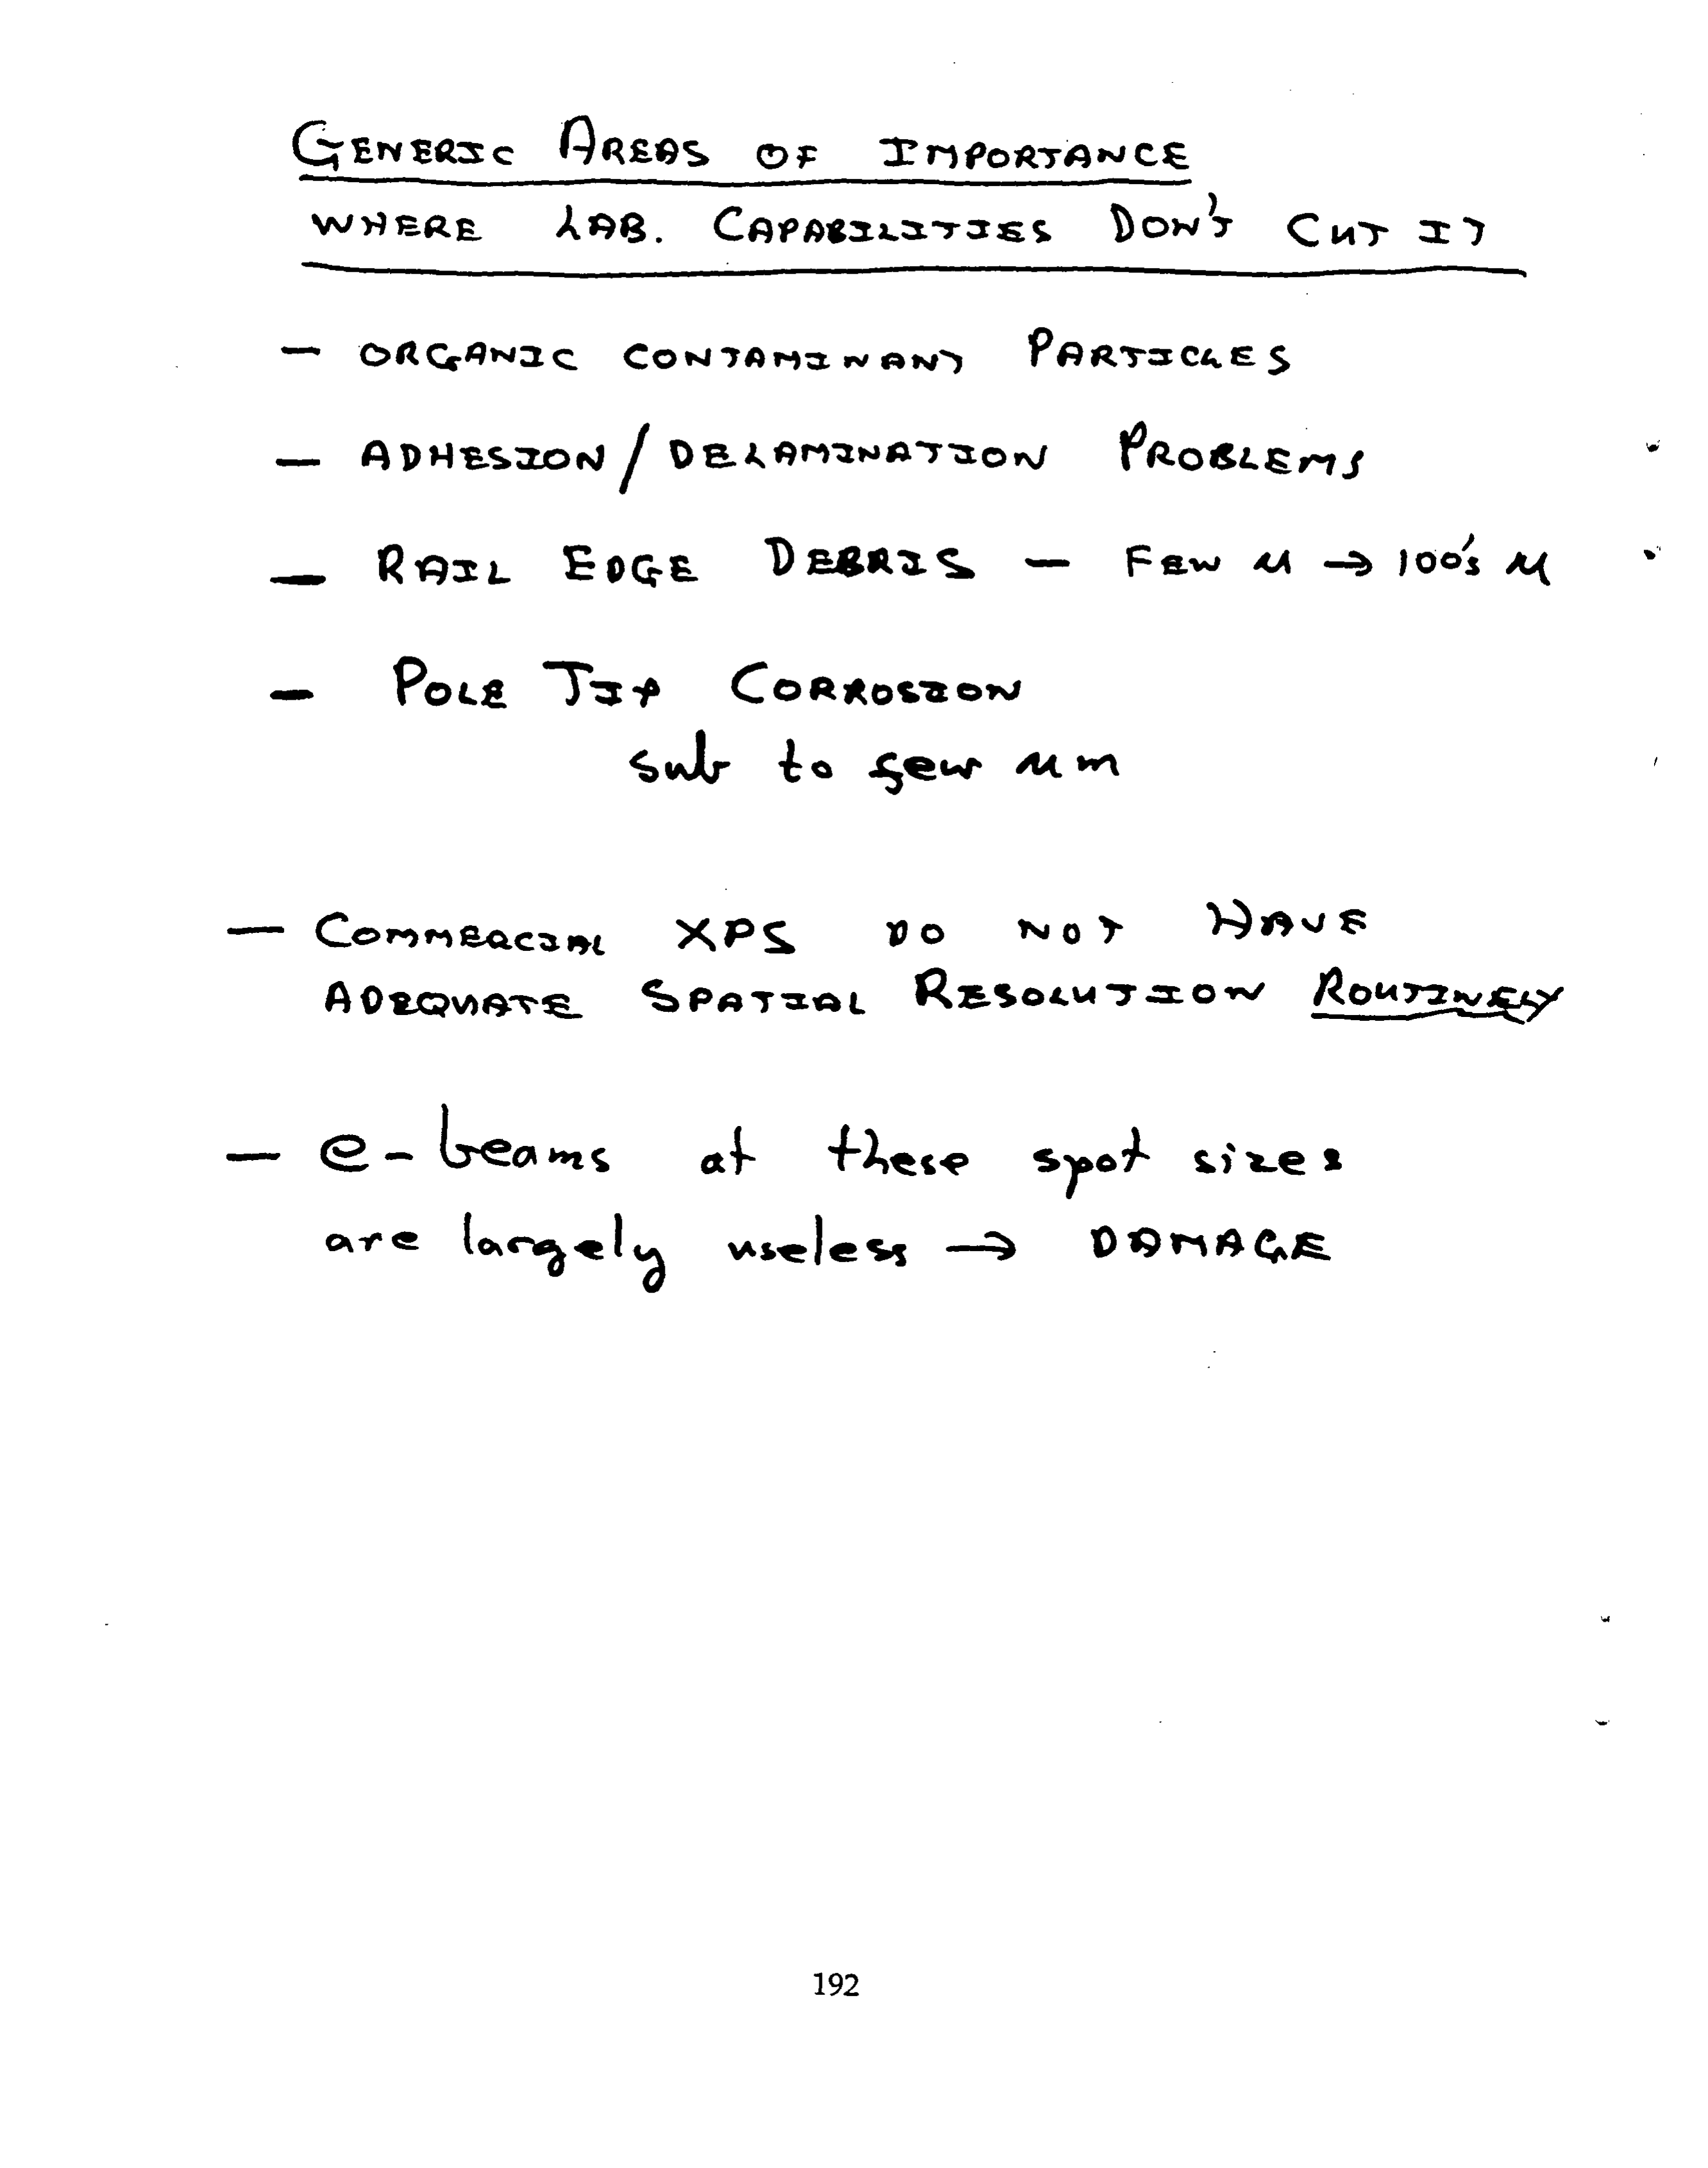 GENERIC AREAS OF IMPORTANCE
WHERE LAB. CAPABILITIES DON'T CUT IT
— ORGANIC CONTAMINANT PARTICLES
— ADHESION/DELAMINATION PROBLEMS
— RAIL EDGE DEBRIS — FEW μ → 100's μ
— POLE TIP CORROSION
sub to few μm
— COMMERCIAL XPS DO NOT HAVE
ADEQUATE SPATIAL RESOLUTION ROUTINELY
— e-beams at these spot sizes
are largely useless → DAMAGE
192